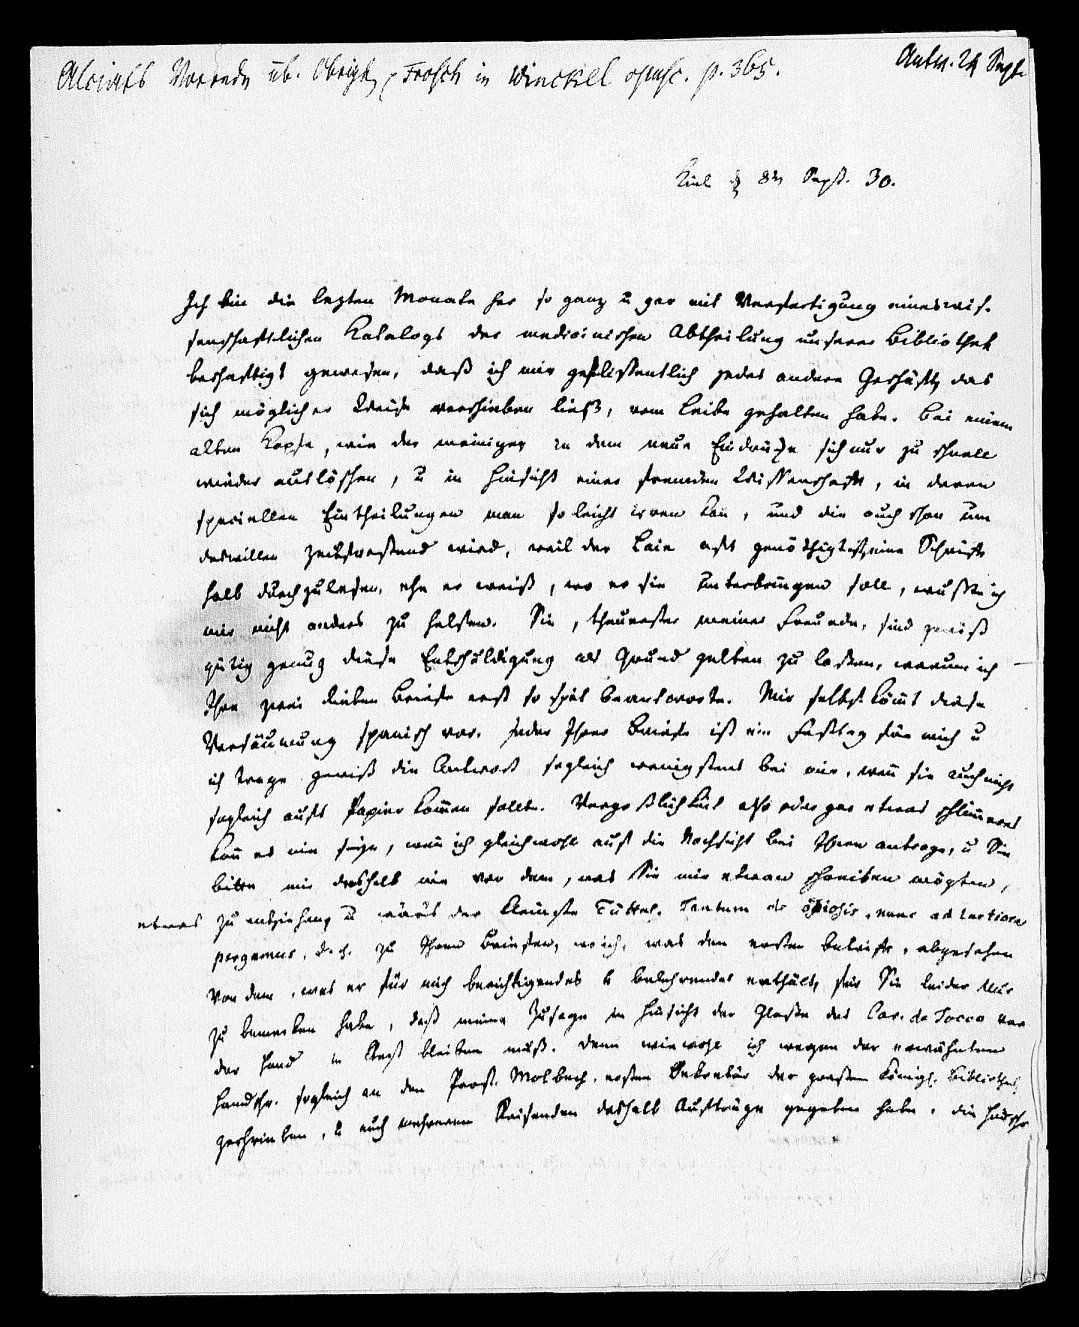 Alciats Vorrede üb. Obrigk Frosch in Winckel opusc. p. 365.
Antw. 24 Sept.
Kiel d 8t Sept. 30.
Ich bin die lezten Monate her so ganz u gar mit Verfertigung eines wis-
senschaftlichen Katalogs der medicinischen Abtheilung unserer Bibliothek
beschäftigt gewesen, daß ich mir geflissentlich jedes andere Geschäft, das
sich möglicher Weise verschieben ließ, vom Leibe gehalten habe. Bei einem
alten Kopfe, wie der meinige, in dem neue Eindrücke sich nur zu schnell
wieder auslöschen, u in Hinsicht einer fremden Wissenschaft, in deren
speciellen Eintheilungen man so leicht irren kañ, und die auch schon um
deswillen zeitfressend wird, weil der Laie oft genöthigt ist, eine Schrift
halb durchzulesen, ehe er weiß, wo er sie unterbringen soll, wußte ich
mir nicht anders zu helfen. Sie, theuerster meiner Freunde, sind gewiß
gütig genug diese Entschuldigung als Grund gelten zu lassen, warum ich
Ihre zwei lieben Briefe erst so spät beantworte. Mir selbst kom̃t diese
Versäumung spanisch vor. Jeder Ihrer Briefe ist ein Festtag für mich u
ich trage gewiß die Antwort sogleich wenigstens bei mir, weñ sie auch nicht
sogleich aufs Papier kom̃en sollte. Vergeßlichkeit also oder gar etwas schlim̃eres
kañ es nie seyn, weñ ich gleichwohl auf die Nachsicht bei Ihnen antrage, u Sie
bitte mir deshalb nie von dem, was Sie mir etwan schreiben mögten,
etwas zu entziehen, u wär's der kleinste Tüttel. Tantum de nunc ad lectiora
pergamus, d. h. zu Ihren Briefen, wo ich, was den ersten betrifft, abgesehen
von dem, was er für mich berichtigendes u belehrendes enthält, für Sie leider nur
zu bemerken habe, daß meine Zusage in Hinsicht der Glosse des Car. de Tocco vor
der Hand in bleiben muß. Denn wiewohl ich wegen der erwähnten
Handschr. sogleich an den Prof. Molbech, ersten Sekretär der großen Königl. Bibliothek,
geschrieben, u auch mehreren Reisenden deshalb Aufträge gegeben habe, die Hdschr